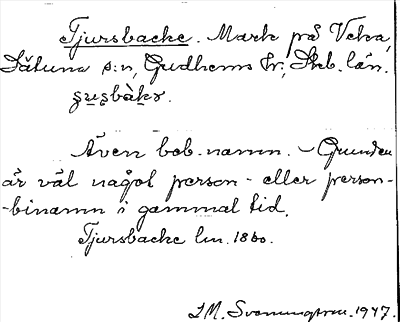 Tjursbacke. Mark på Veka,
Sätuna s:n, Gudhems hr; Skb. län.
Även beb.-namn. – Grunden
är väl något person- eller person-
-binamn i gammal tid.
Tjursbacke lm. 1860.
J M. Svenungsson. 1947.